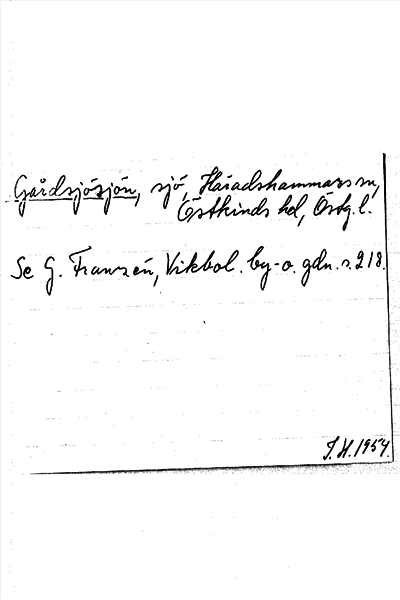 Gårdsjösjön, sjö, Häradshammars sn,
Östkinds hd, Östg. l.
Se G. Franzén, Vikbol. by- o. gdn. s. 218.
J. H. 1954.